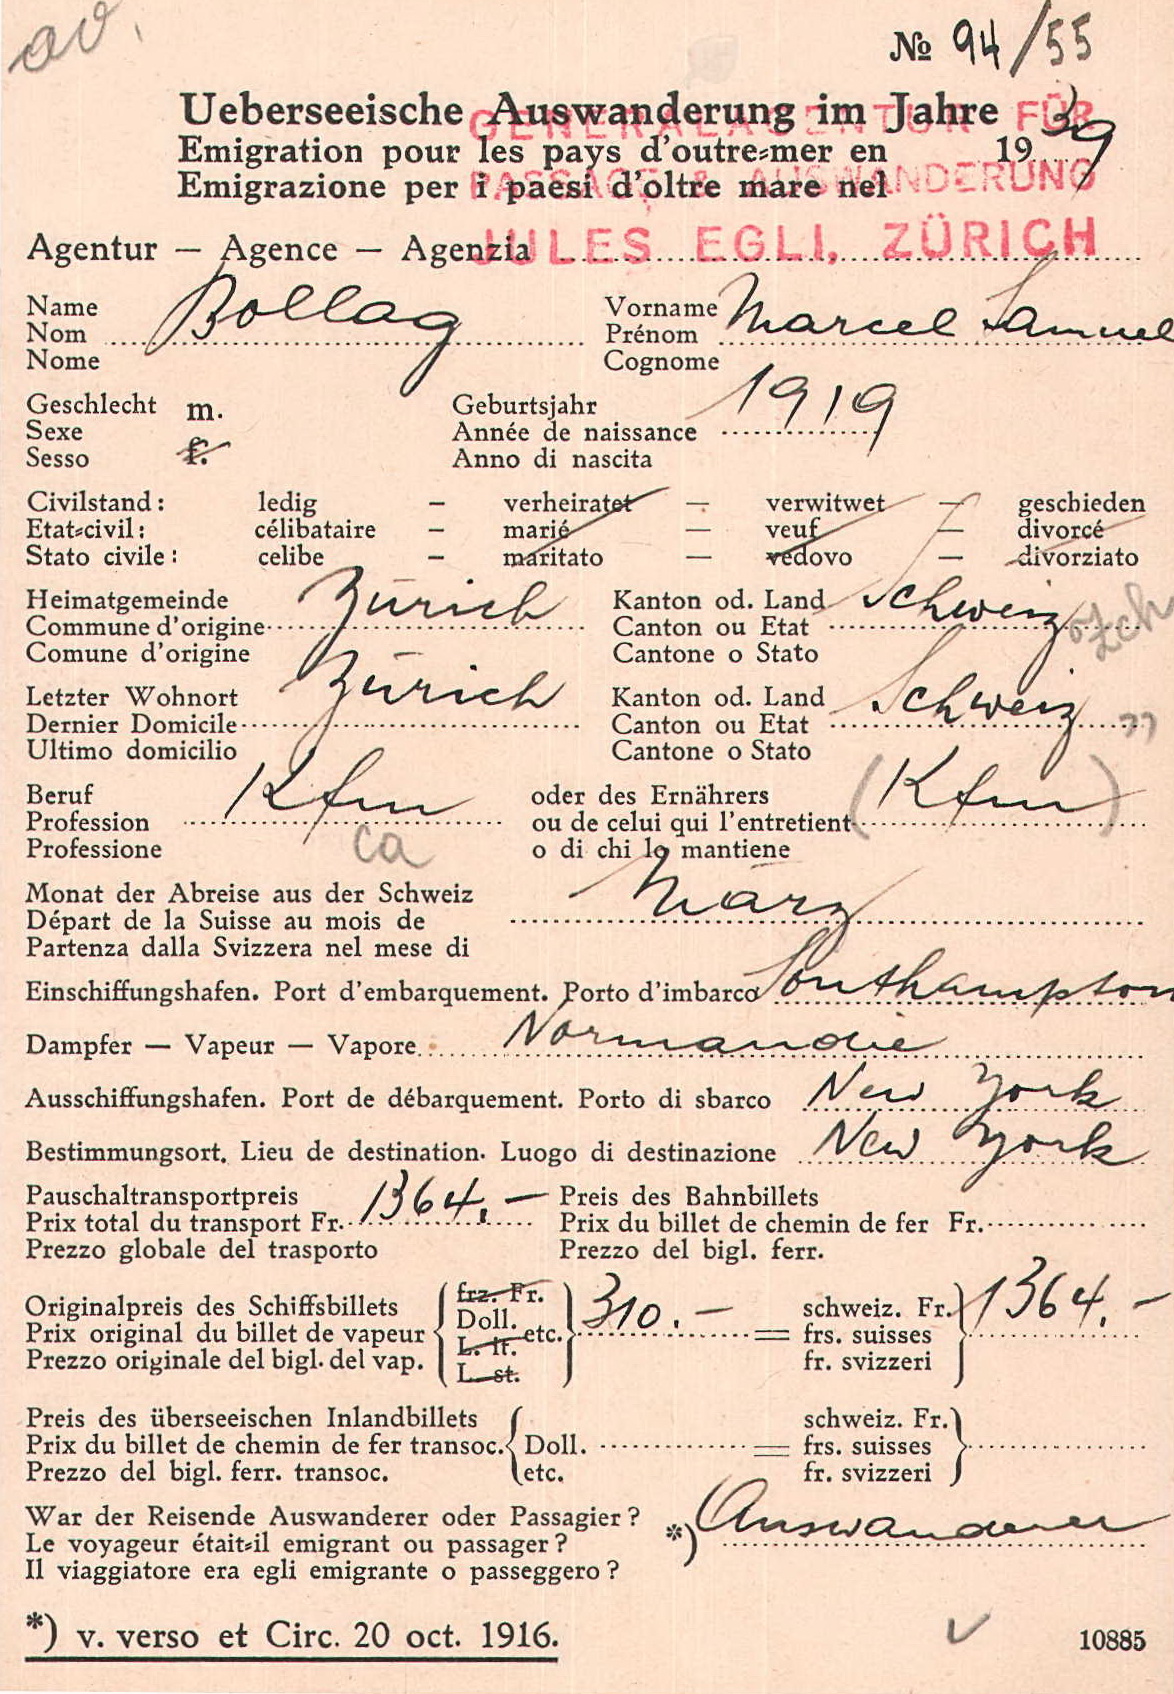 av.
№ 94/55
Ueberseeische Auswanderung im Jahre
Emigration pour les pays d'outre-mer en 1939
Emigrazione per i paesi d'oltre mare nel
GENERALAGENTUR FÜR
PASSAGE & AUSWANDERUNG
JULES EGLI, ZÜRICH
Agentur — Agence — Agenzia
Name Bollag Vorname Marcel Samuel
Nom Prénom
Nome Cognome
Geschlecht m. Geburtsjahr 1919
Sexe Année de naissance
Sesso f. Anno di nascita
Civilstand: ledig – verheiratet — verwitwet — geschieden
Etat-civil: célibataire – marié — veuf — divorcé
Stato civile: celibe – maritato — vedovo — divorziato
Heimatgemeinde Zürich Kanton od. Land Schweiz
Commune d'origine Canton ou Etat Zch
Comune d'origine Cantone o Stato
Letzter Wohnort Zürich Kanton od. Land Schweiz
Dernier Domicile Canton ou Etat "
Ultimo domicilio Cantone o Stato
Beruf Kfm oder des Ernährers (Kfm)
Profession ou de celui qui l'entretient
Professione ca o di chi lo mantiene
Monat der Abreise aus der Schweiz März
Départ de la Suisse au mois de
Partenza dalla Svizzera nel mese di
Einschiffungshafen. Port d'embarquement. Porto d'imbarco Southampton
Dampfer — Vapeur — Vapore Normandie
Ausschiffungshafen. Port de débarquement. Porto di sbarco New York
Bestimmungsort. Lieu de destination. Luogo di destinazione New York
Pauschaltransportpreis 1364.— Preis des Bahnbillets
Prix total du transport Fr. Prix du billet de chemin de fer Fr.
Prezzo globale del trasporto Prezzo del bigl. ferr.
frz. Fr.
Originalpreis des Schiffsbillets Doll. 310.— schweiz. Fr. 1364.—
Prix original du billet de vapeur L. it. etc. = frs. suisses
Prezzo originale del bigl. del vap. L. st. fr. svizzeri
Preis des überseeischen Inlandbillets schweiz. Fr.
Prix du billet de chemin de fer transoc. Doll. = frs. suisses
Prezzo del bigl. ferr. transoc. etc. fr. svizzeri
War der Reisende Auswanderer oder Passagier? *) Auswanderer
Le voyageur était-il emigrant ou passager?
Il viaggiatore era egli emigrante o passeggero?
*) v. verso et Circ. 20 oct. 1916.
10885